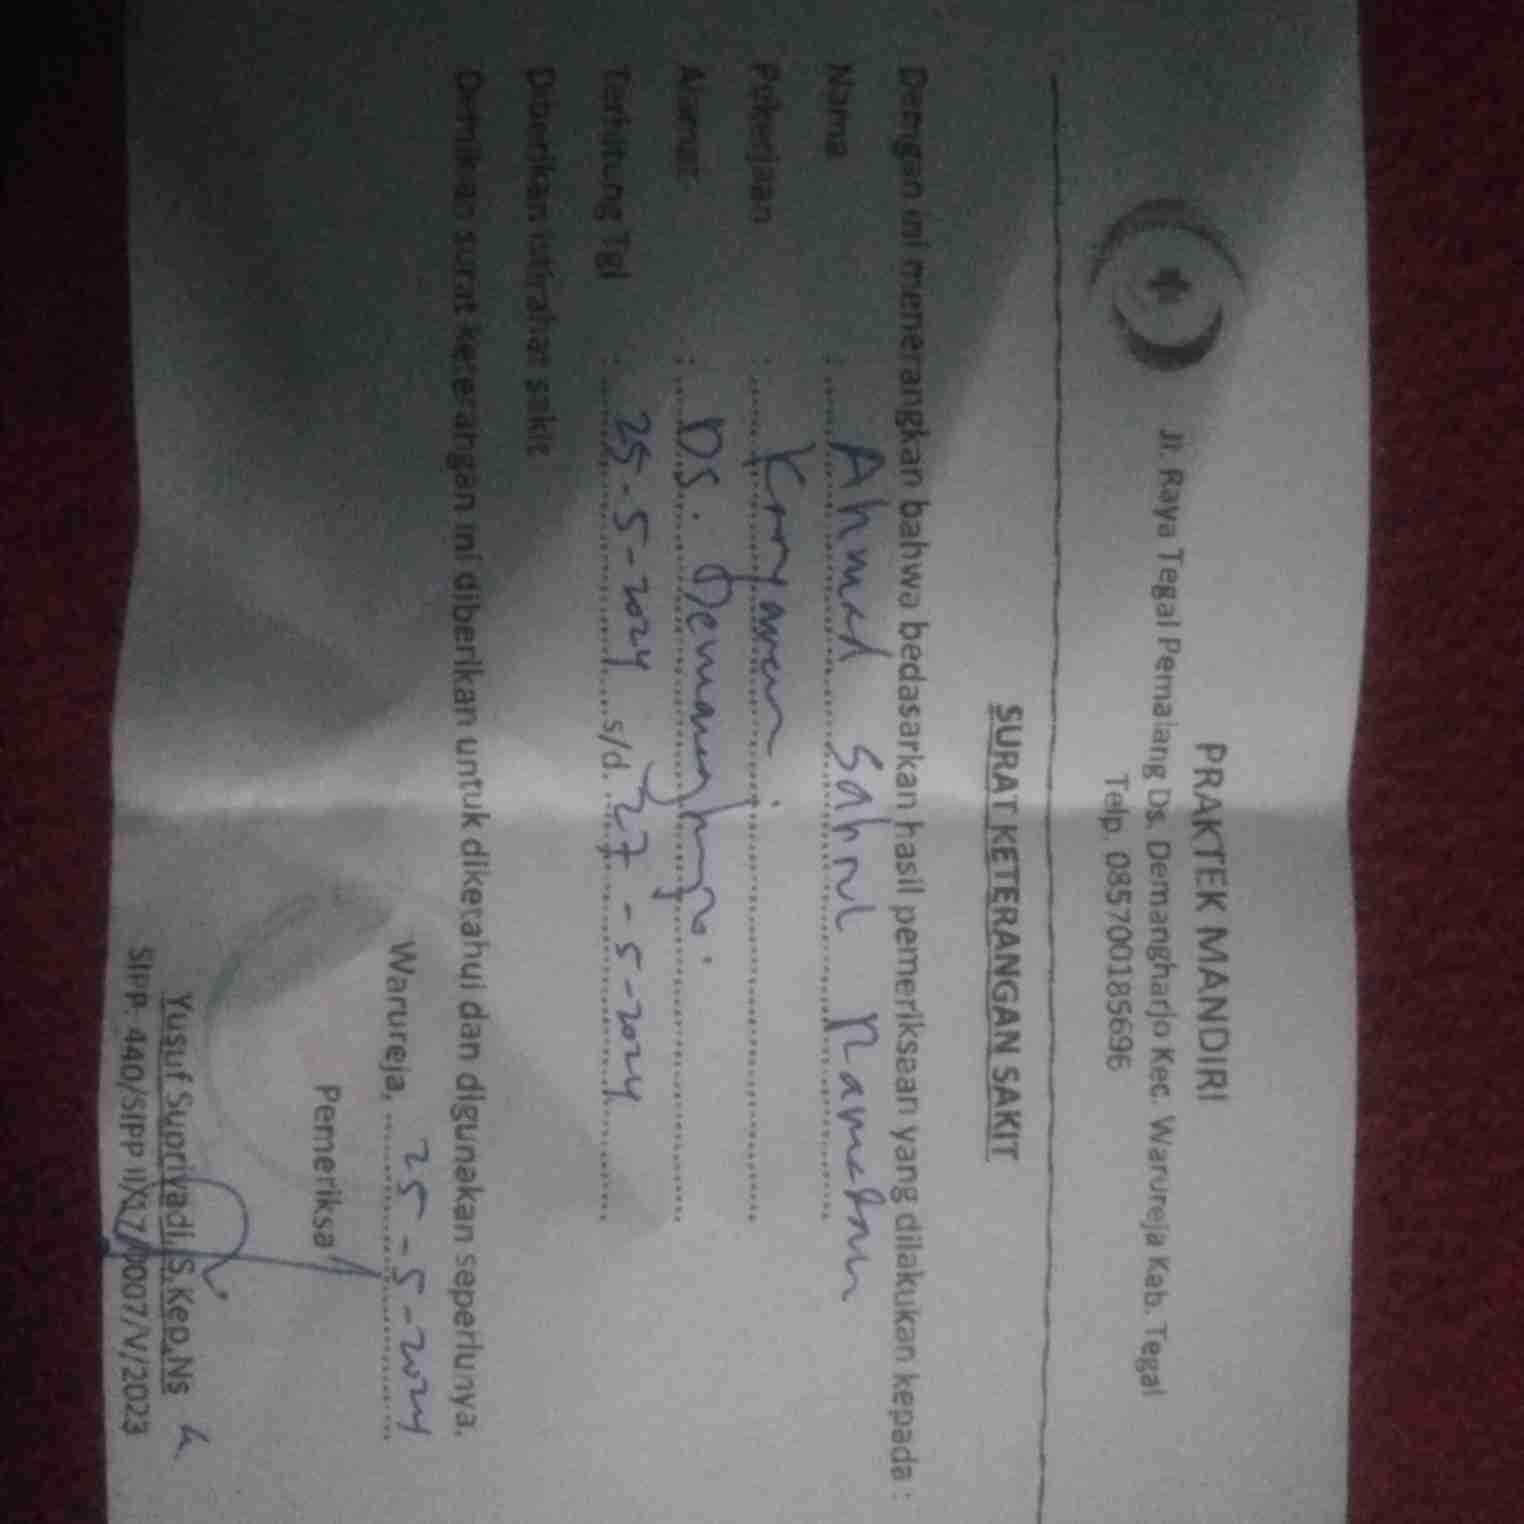 PRAKTEK MANDIRI
Jl. Raya Tegal Pemalang Ds. Demangharjo Kec. Warureja Kab. Tegal
Telp. 085700185696
SURAT KETERANGAN SAKIT
Dengan ini menerangkan bahwa bedasarkan hasil pemeriksaan yang dilakukan kepada :
Nama : Ahmad Sahrul Ramadan
Pekerjaan : Karyawan
Alamat : DS. Demangharjo
Terhitung Tgl : 25-5-2024 s/d. 27-5-2024
Diberikan istirahat sakit
Demikian surat keterangan ini diberikan untuk diketahui dan digunakan seperlunya.
Warureja, 25-5-2024
Pemeriksa
Yusuf Supriyadi, S.Kep.Ns